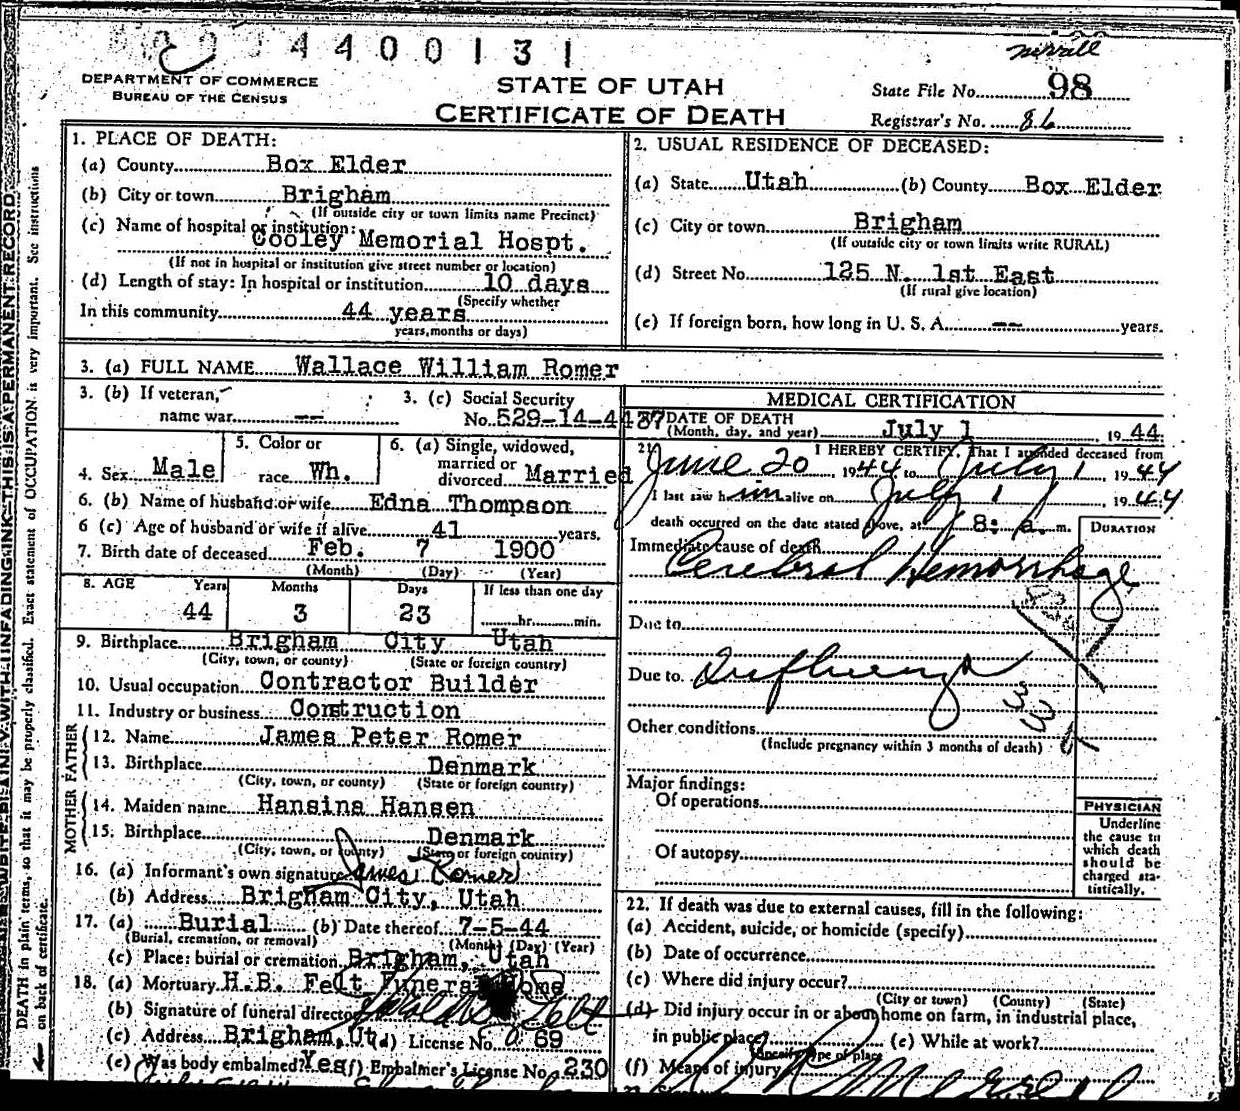 4 4 0 0 1 3 1
DEPARTMENT OF COMMERCE
BUREAU OF THE CENSUS
STATE OF UTAH
CERTIFICATE OF DEATH
merrill
State File No. 98
Registrar's No. 86
WRITE PLAINLY WITH UNFADING INK—THIS IS A PERMANENT RECORD
DEATH in plain terms, so that it may be properly classified. Exact statement of OCCUPATION is very important. See instructions
on back of certificate.
1. PLACE OF DEATH:
(a) County Box Elder
(b) City or town Brigham
(If outside city or town limits name Precinct)
(c) Name of hospital or institution:
Cooley Memorial Hospt.
(If not in hospital or institution give street number or location)
(d) Length of stay: In hospital or institution 10 days
(Specify whether
In this community 44 years
years, months or days)
2. USUAL RESIDENCE OF DECEASED:
(a) State Utah (b) County Box Elder
(c) City or town Brigham
(If outside city or town limits write RURAL)
(d) Street No. 125 N. 1st East
(If rural give location)
(e) If foreign born, how long in U. S. A. -- years.
3. (a) FULL NAME Wallace William Romer
3. (b) If veteran, name war --
3. (c) Social Security No. 529-14-4487
4. Sex Male
5. Color or race Wh.
6. (a) Single, widowed, married or divorced Married
6. (b) Name of husband or wife Edna Thompson
6 (c) Age of husband or wife if alive 41 years.
7. Birth date of deceased Feb. 7 1900
(Month) (Day) (Year)
8. AGE Years Months Days If less than one day
44 3 23 hr. min.
9. Birthplace Brigham City Utah
(City, town, or county) (State or foreign country)
10. Usual occupation Contractor Builder
11. Industry or business Construction
FATHER
12. Name James Peter Romer
13. Birthplace Denmark
(City, town, or county) (State or foreign country)
MOTHER
14. Maiden name Hansina Hansen
15. Birthplace Denmark
(City, town, or county) (State or foreign country)
16. (a) Informant's own signature James Romer
(b) Address Brigham City, Utah
17. (a) Burial (b) Date thereof 7-5-44
(Burial, cremation, or removal) (Month) (Day) (Year)
(c) Place: burial or cremation Brigham, Utah
18. (a) Mortuary H.B. Felt Funeral Home
(b) Signature of funeral director Harold B. Felt
(c) Address Brigham, Ut. (d) License No. 69
(e) Was body embalmed? Yes (f) Embalmer's License No. 230
MEDICAL CERTIFICATION
20. DATE OF DEATH
(Month, day, and year) July 1 , 19 44
21. I HEREBY CERTIFY, That I attended deceased from
June 20 1944, to July 1, 1944
I last saw him alive on July 1, 1944
death occurred on the date stated above, at 8: a. m.
DURATION
Immediate cause of death
Cerebral Hemorrhage
Due to
Due to Influenza
33
Other conditions
(Include pregnancy within 3 months of death)
Major findings:
Of operations
Of autopsy
PHYSICIAN
Underline
the cause to
which death
should be
charged sta-
tistically.
22. If death was due to external causes, fill in the following:
(a) Accident, suicide, or homicide (specify)
(b) Date of occurrence
(c) Where did injury occur?
(City or town) (County) (State)
(d) Did injury occur in or about home on farm, in industrial place,
in public place (e) While at work?
(Specify type of place)
(f) Means of injury